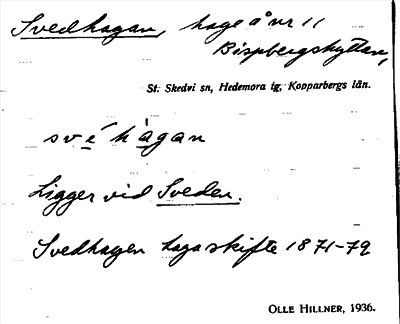 Svedhagan, hage å nr 11
Bispbergshyttan,
St. Skedvi sn, Hedemora tg, Kopparbergs län.
své hàgan
Ligger vid Sveden.
Svedhagen laga skifte 1871-79
OLLE HILLNER, 1936.